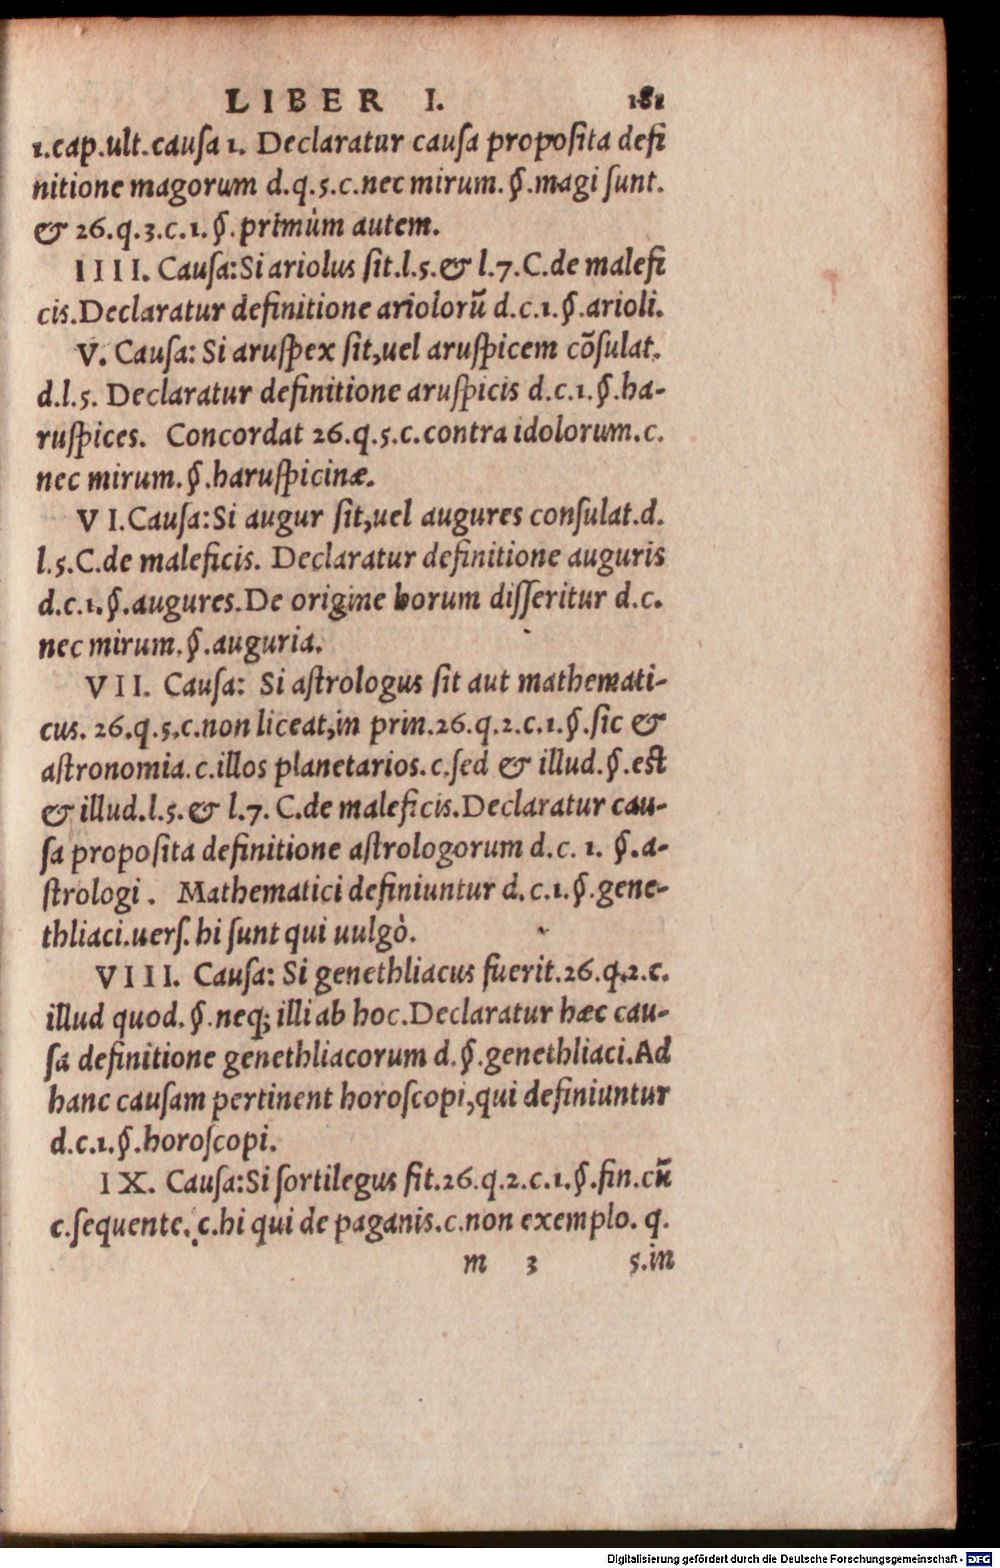 LIBER I. 181
1.cap.ult.causa 1. Declaratur causa proposita defi
nitione magorum d.q.5.c.nec mirum.§.magi sunt.
& 26.q.3.c.1.§.primùm autem.
IIII. Causa:Si ariolus sit.l.5.& l.7.C.de malefi
cis.Declaratur definitione ariolorũ d.c.1.§.arioli.
V. Causa: Si aruspex sit,uel aruspicem cõsulat.
d.l.5. Declaratur definitione aruspicis d.c.1.§.ha-
ruspices. Concordat 26.q.5.c.contra idolorum.c.
nec mirum.§.haruspicinæ.
VI.Causa:Si augur sit,uel augures consulat.d.
l.5.C.de maleficis. Declaratur definitione auguris
d.c.1.§.augures.De origine horum disseritur d.c.
nec mirum.§.auguria.
VII. Causa: Si astrologus sit aut mathemati-
cus. 26.q.5.c.non liceat,in prin.26.q.2.c.1.§.sic &
astronomia.c.illos planetarios.c.sed & illud.§.est
& illud.l.5.& l.7. C.de maleficis.Declaratur cau-
sa proposita definitione astrologorum d.c. 1. §.a-
strologi. Mathematici definiuntur d.c.1.§.gene-
thliaci.uers.hi sunt qui uulgò.
VIII. Causa: Si genethliacus fuerit.26.q.2.c.
illud quod.§.neq; illi ab hoc.Declaratur hæc cau-
sa definitione genethliacorum d.§.genethliaci.Ad
hanc causam pertinent horoscopi,qui definiuntur
d.c.1.§.horoscopi.
IX. Causa:Si sortilegus sit.26.q.2.c.1.§.fin.cũ
c.sequente.c.hi qui de paganis.c.non exemplo. q.
m 3 5.in
Digitalisierung gefördert durch die Deutsche Forschungsgemeinschaft - DFG